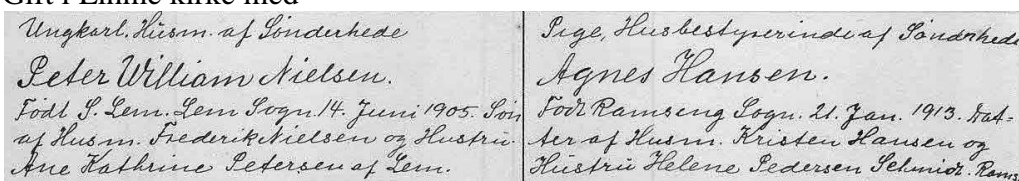 Gift i Lihme kirke med
Ungkarl. Husm. af Sønderhede
Peter William Nielsen.
Født S. Lem. Lem Sogn. 14. Juni 1905. Søn
af Husm. Frederik Nielsen og Hustru.
Ane Kathrine Petersen af Lem.
Pige, Husbestyrerinde af Sønderhede
Agnes Hansen.
Født Ramsing Sogn. 21. Jan. 1913. Dat-
ter af Husm. Kristen Hansen og
Hustru Helene Pedersen Schmidt. Rams